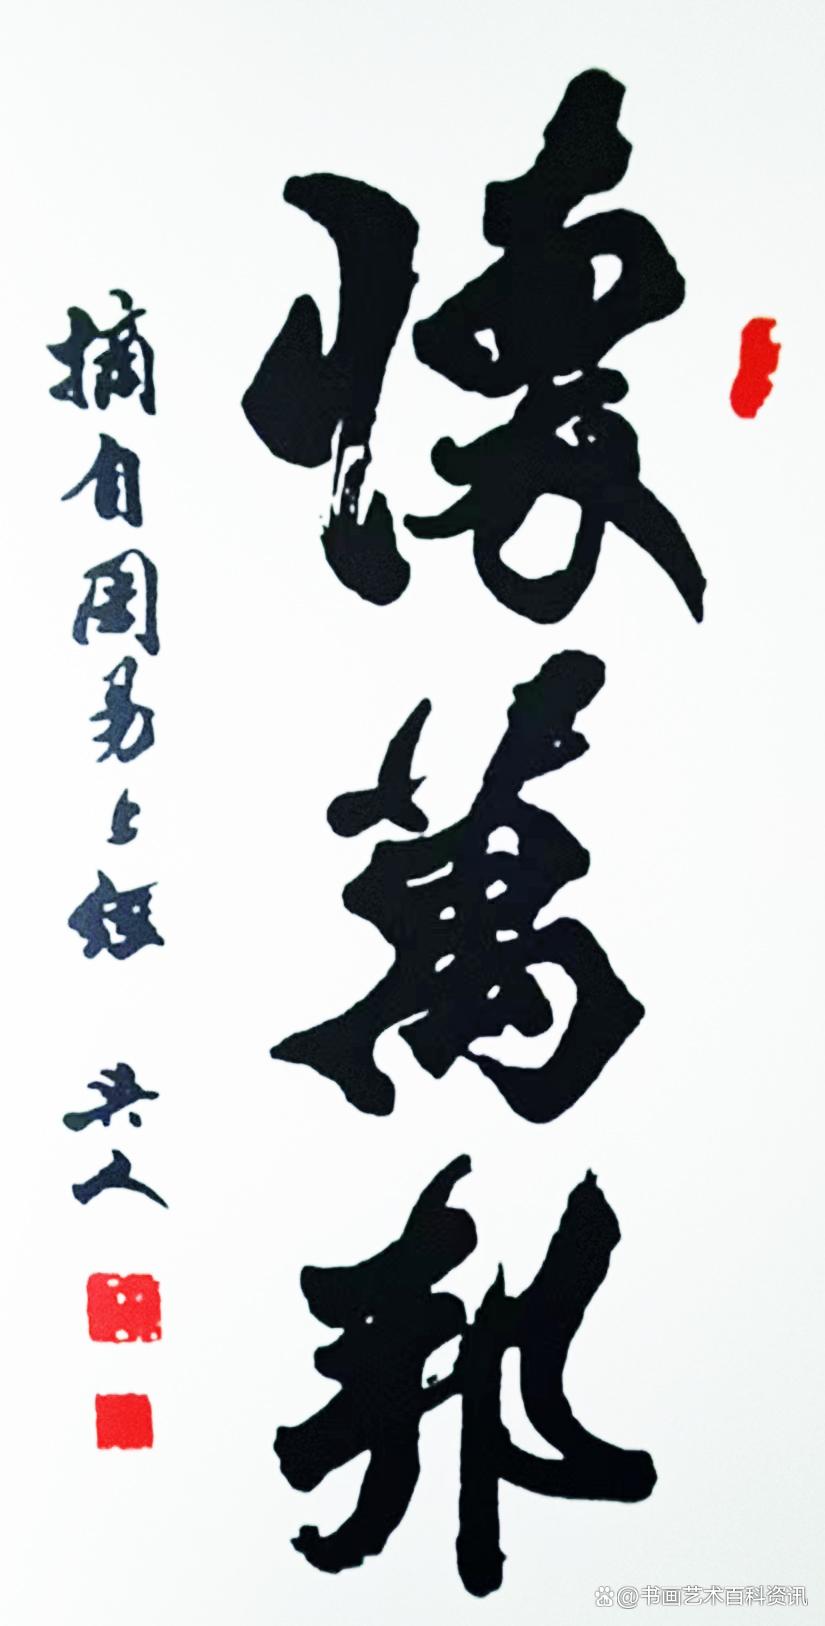 懷萬邦
摘自周易上經 昊人
@书画艺术百科资讯